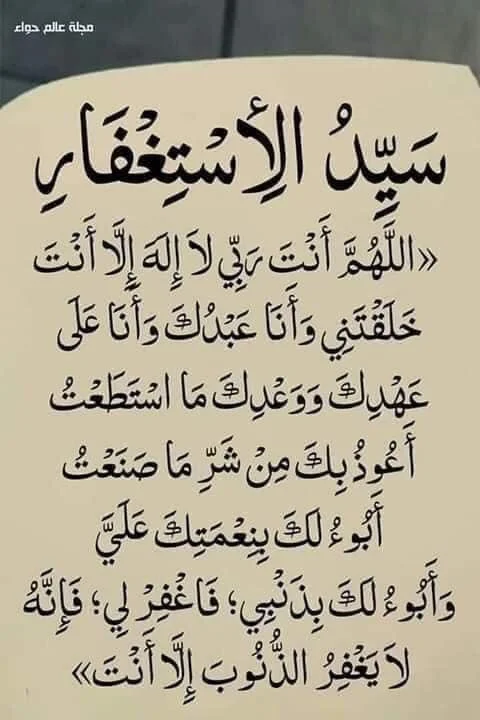 مجلة عالم حواء
سَيِّدُ الْأِسْتِغْفَارِ
«اللَّهُمَّ أَنْتَ رَبِّي لَا إِلَهَ إِلَّا أَنْتَ
خَلَقْتَنِي وَأَنَا عَبْدُكَ وَأَنَا عَلَى
عَهْدِكَ وَوَعْدِكَ مَا اسْتَطَعْتُ
أَعُوذُ بِكَ مِنْ شَرِّ مَا صَنَعْتُ
أَبُوءُ لَكَ بِنِعْمَتِكَ عَلَيَّ
وَأَبُوءُ لَكَ بِذَنْبِي؛ فَاغْفِرْ لِي؛ فَإِنَّهُ
لَا يَغْفِرُ الذُّنُوبَ إِلَّا أَنْتَ»